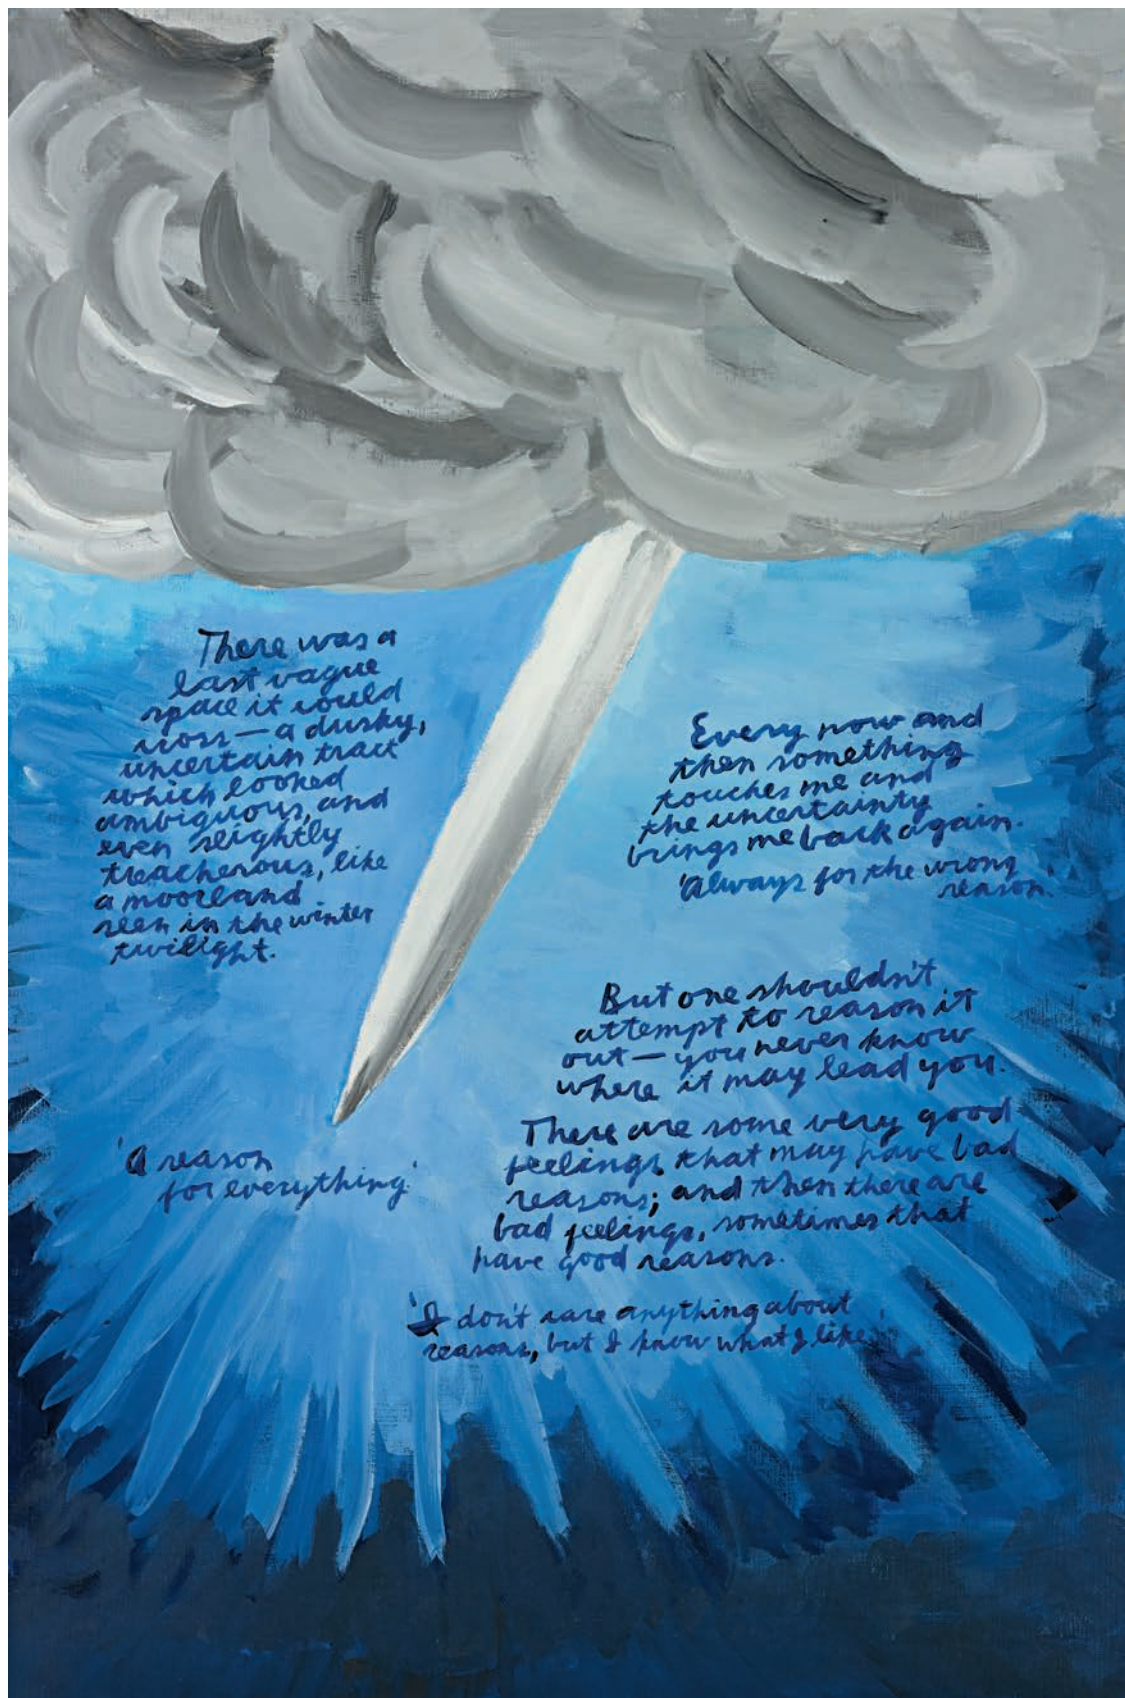 There was a
last vague
space it could
cross — a dusky,
uncertain tract
which looked
ambiguous, and
even slightly
treacherous, like
a moorland
seen in the winter
twilight.
Every now and
then something
touches me and
the uncertainty
brings me back again.
'Always for the wrong
reason.'
But one shouldn't
attempt to reason it
out — you never know
where it may lead you.
'A reason
for everything'
There are some very good
feelings that may have bad
reasons; and then there are
bad feelings, sometimes that
have good reasons.
'I don't care anything about
reasons, but I know what I like.'